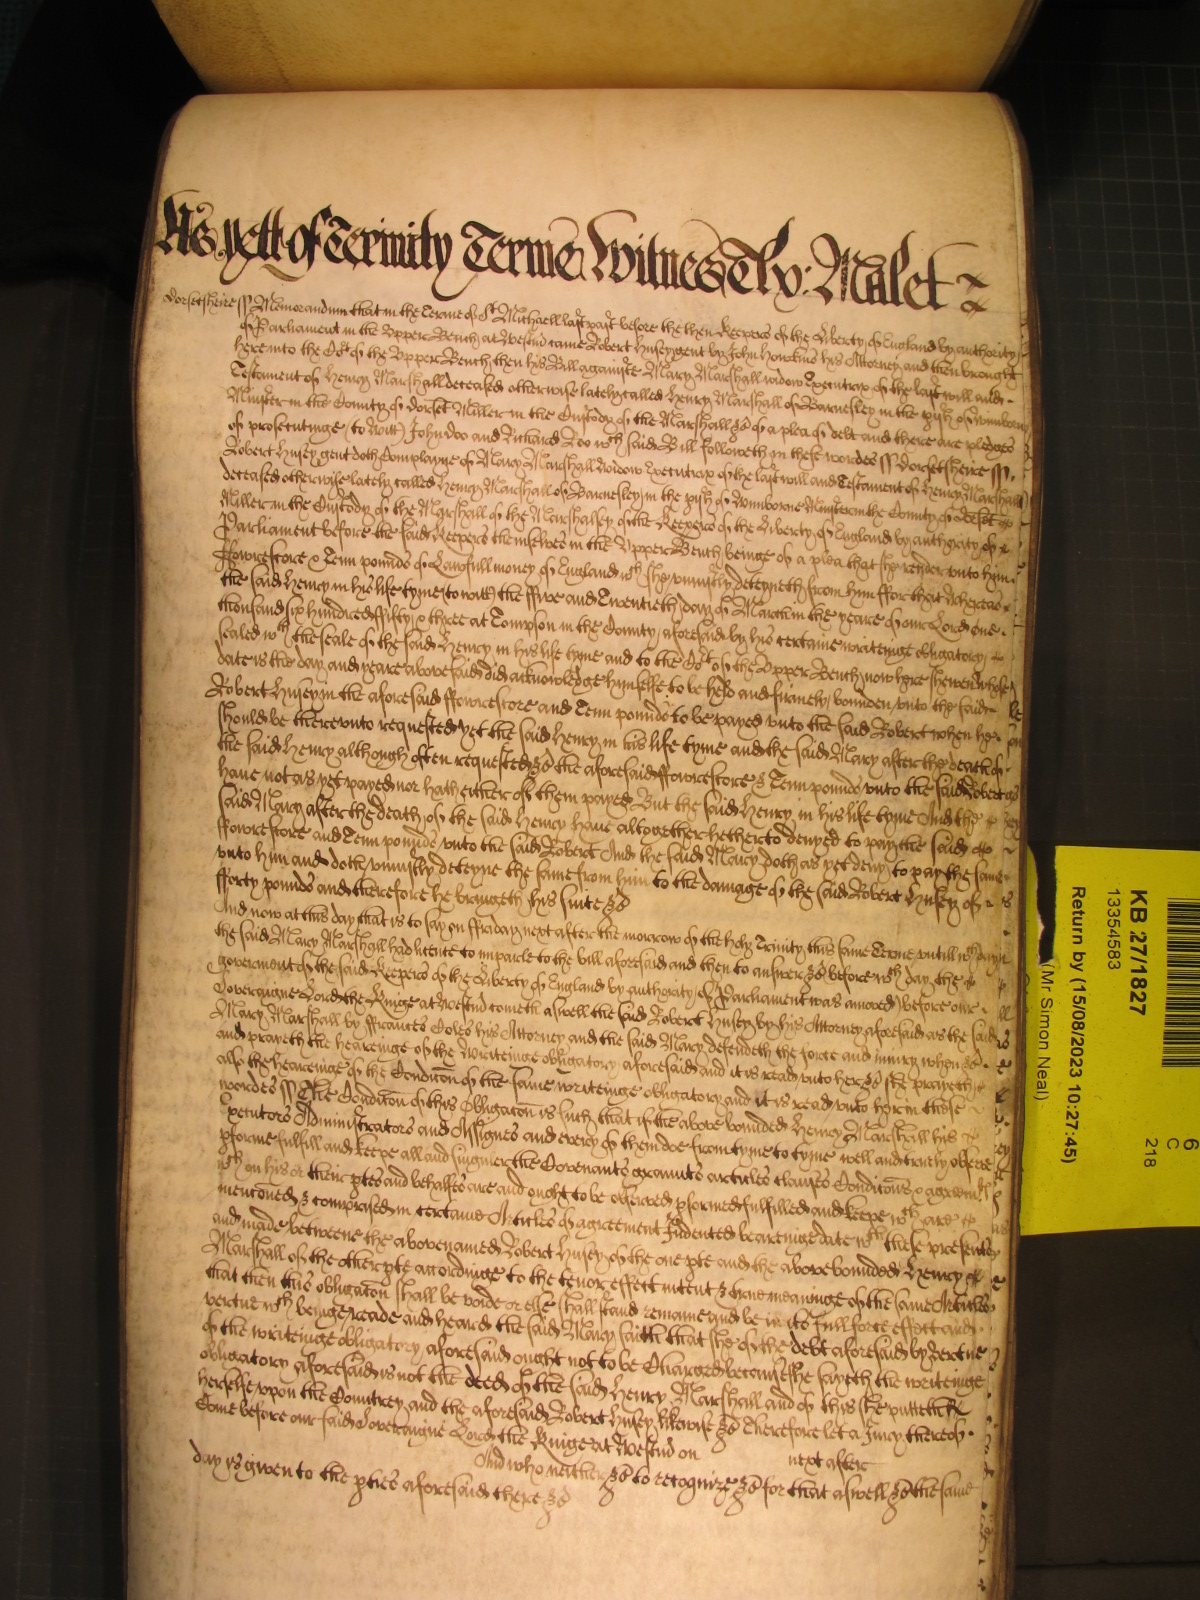 As yett of Terinity Terme Witnes Tho: Malet
Dorsetsheire ss Memorandum that in the Terme of St Michaell last past before the then Keepers of the Liberty of England by authority
of Parliament in the Upper Bench at Westmr came Robert Husey gent by John Hawkins his Attorney and then brought
here into the Cort of the Upper Bench then his Bill againste Mary Marshall widow Executrix of the last will and
Testament of Henry Marshall deceased otherwise lately called Henry Marshall of Barnesley in the pish of Winborne
Minster in the County of Dorset Miller in the Custody of the Marshall &c of a plea of debt and there are pledges
of prosecutinge (to witt) John Doo and Richard Roo wch said Bill followeth in these wordes ss Dorsetsheire ss
Robert Husey gent doth Complayne of Mary Marshall Widow Executrix of the last will and Testament of Henry Marshall
deceased otherwise lately called Henry Marshall of Barnesley in the pish of Winborne Minster in the County of Dorset
Miller in the Custody of the Marshall of the Marshalsey of the Keepers of the Liberty of England by authority of
Parliament before the said Keepers themselves in the Upper Bench beinge of a plea that she render unto him
ffowrescore & Tenn pounds of Lawfull money of England wch she uniustly deteyneth from him ffor that Whereas
the said Henry in his life tyme (to witt) the ffive and Twentieth day of March in the yeare of our Lord one
thousand six hundred fifty & three at Tompson in the County aforesaid by his certaine writeinge obligatory
sealed wth the seale of the said Henry in his life tyme and to the Cort of the Upper Bench now here shewen whose
date is the day and yeare abovesaid did acknowledge himselfe to be held and firmely bounden unto the said
Robert Husey in the aforesaid ffowrescore and Tenn pounds to be payed unto the said Robert when he
should be thereunto requested yet the said Henry in his life tyme and the said Mary after the death of
the said Henry although often requested &c the aforesaid ffowrescore & Tenn pounds unto the said Robert
have not as yet payed nor hath either of them payed But the said Henry in his life tyme And the
said Mary after the death of the said Henry have altogether hetherto denyed to pay the said
ffowrescore and Tenn pounds unto the said Robert And the said Mary doth as yet deny to pay the same
unto him and doth uniustly deteyne the same from him to the damage of the said Robert Husey of
fforty pounds and therefore he bringeth his suite &c
And now at this day that is to say on ffriday next after the morrow of the holy Trinity this same Terme untill wch day
the said Mary Marshall had licence to imparle to the bill aforesaid and then to answer &c before wch day the
goverment of the said Keepers of the Liberty of England by authority of Parliament was amoved before our
Soveraigne Lord the Kinge at Westmr cometh aswell the said Robert Husey by his Attorney aforesaid as the said
Mary Marshall by ffrances Coles his Attorney and the said Mary defendeth the force and iniury when &c
and prayeth the heareinge of the Writeinge obligatory aforesaid and it is read unto her &c she prayeth
also the heareinge of the Condicon of the same writeinge obligatory and it is read unto her in these
wordes ss The Condicon of this Obligacon is such that if the above bounded Henry Marshall his
Executors Administrators and Assignes and every of them doe from tyme to tyme well and truely observe
pforme fulfill and keepe all and singuler the Covenants graunts articles clauses Condicons & agreemts
wch on his or their ptes and behalfes are and ought to be observed pformed fulfilled and keepe wch are
mencioned & comprised in certaine Articles of agreement Indented beareinge date wth these presents
and made betweene the abovenamed Robert Husey of the one pte and the above bounded Henry
Marshall of the other pte accordinge to the tenor effect intent & true meaninge of the same Articles
that then this obligacon shall be voide or else shall stand remaine and be in its full force effect and
vertue wch beinge reade and heard the said Mary saith that she of the debt aforesaid by vertue
of the writeinge obligatory aforesaid ought not to be Charged because she sayeth the writeinge
obligatory aforesaid is not the deed of the said Henry Marshall and of this she putteth
herselfe upon the Countrey and the aforesaid Robert Husey likewise &c Therefore let a Jury thereof
Come before our said Soveraigne Lord the Kinge at Westmr on next after
And who neither &c to recognize &c for that aswell &c the same
day is given to the pties aforesaid there &c
KB 27/1827
13354583
Return by (15/08/2023 10:27:45)
(Mr Simon Neal)
6
C
218